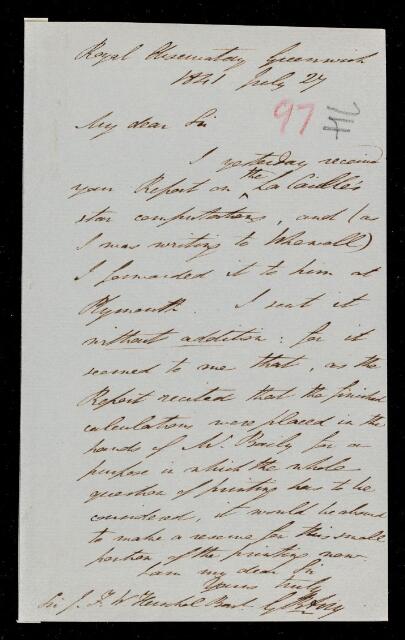 Royal Observatory Greenwich
1841 July 27
97
My dear Sir
I yesterday received
your Report on the La Caille's
star computations, and (as
I was writing to Whewell)
I forwarded it to him at
Plymouth. I sent it
without addition: for it
seemed to me that, as the
Report recited that the finished
calculations were placed in the
hands of Mr. Baily for a
purpose in which the whole
question of printing has to be
considered, it would be absurd
to make a reserve for this small
portion of the printing now.
I am my dear Sir
Yours truly
Sir J. F. W. Herschel Bart. G B Airy